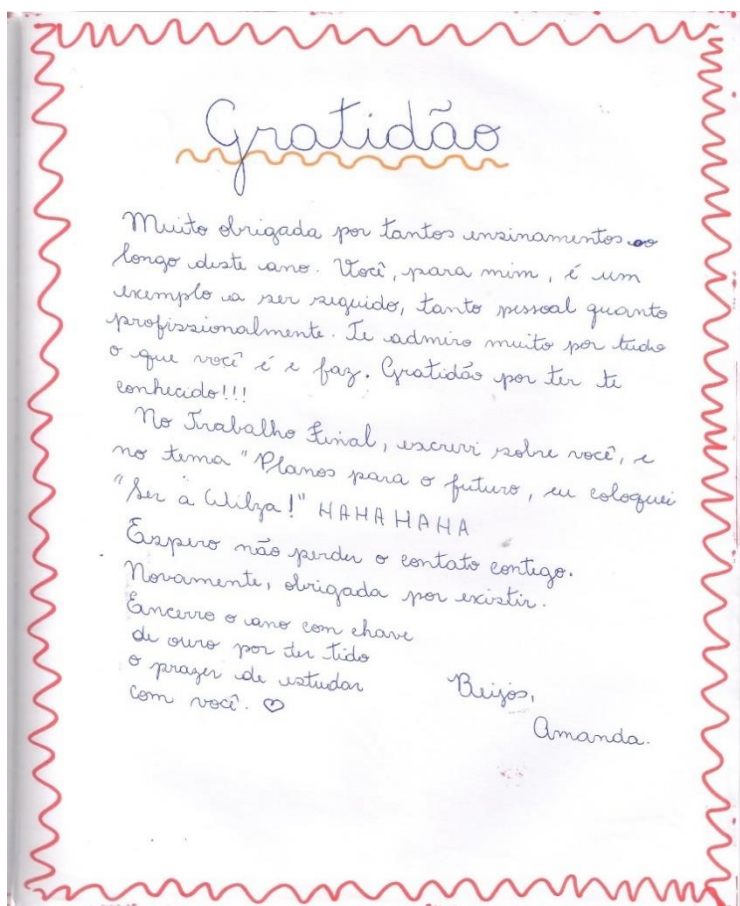 Gratidão
Muito obrigada por tantos ensinamentos ao
longo deste ano. Você, para mim, é um
exemplo a ser seguido, tanto pessoal quanto
profissionalmente. Te admiro muito por tudo
o que você é e faz. Gratidão por ter te
conhecido!!!
No Trabalho Final, escrevi sobre você, e
no tema "Planos para o futuro, eu coloquei
"Ser a Wilza!" HAHAHAHA
Espero não perder o contato contigo.
Novamente, obrigada por existir.
Encerro o ano com chave
de ouro por ter tido
o prazer de estudar
com você. ♡
Beijos,
Amanda.